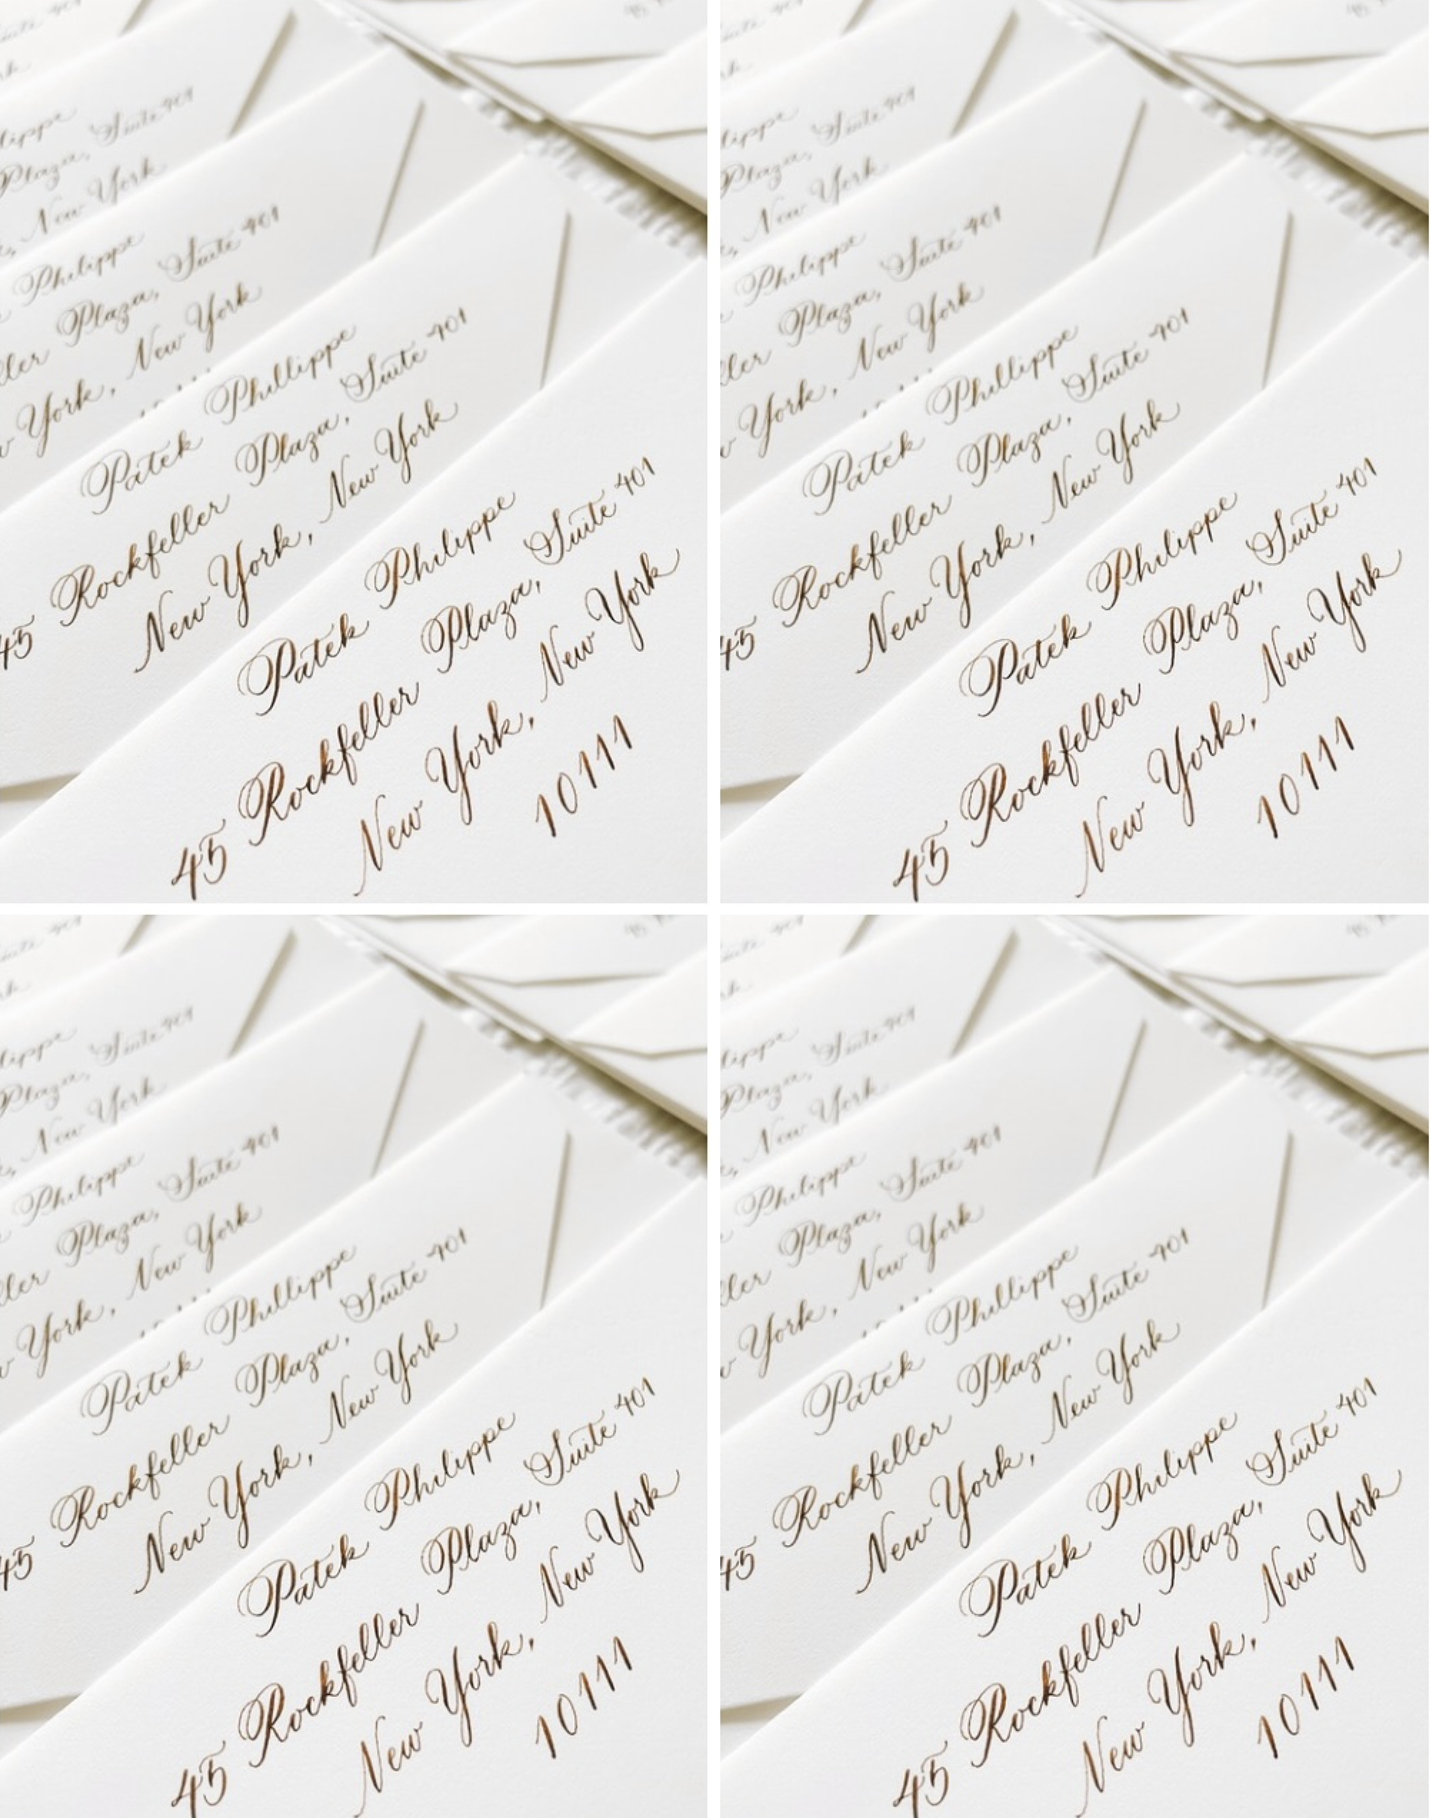 Suite 401
Plaza, Suite 401
New York
Philippe
Plaza, Suite 401
York, New York
Patek Phillippe
45 Rockfeller Plaza, Suite 401
New York, New York
Patek Philippe
45 Rockfeller Plaza, Suite 401
New York, New York
10111
Suite 401
Plaza, Suite 401
New York
Philippe
Plaza, Suite 401
York, New York
Patek Phillippe
45 Rockfeller Plaza, Suite 401
New York, New York
Patek Philippe
45 Rockfeller Plaza, Suite 401
New York, New York
10111
Suite 401
Plaza, Suite 401
New York
Philippe
Plaza, Suite 401
York, New York
Patek Phillippe
45 Rockfeller Plaza, Suite 401
New York, New York
Patek Philippe
45 Rockfeller Plaza, Suite 401
New York, New York
10111
Suite 401
Plaza, Suite 401
New York
Philippe
Plaza, Suite 401
York, New York
Patek Phillippe
45 Rockfeller Plaza, Suite 401
New York, New York
Patek Philippe
45 Rockfeller Plaza, Suite 401
New York, New York
10111